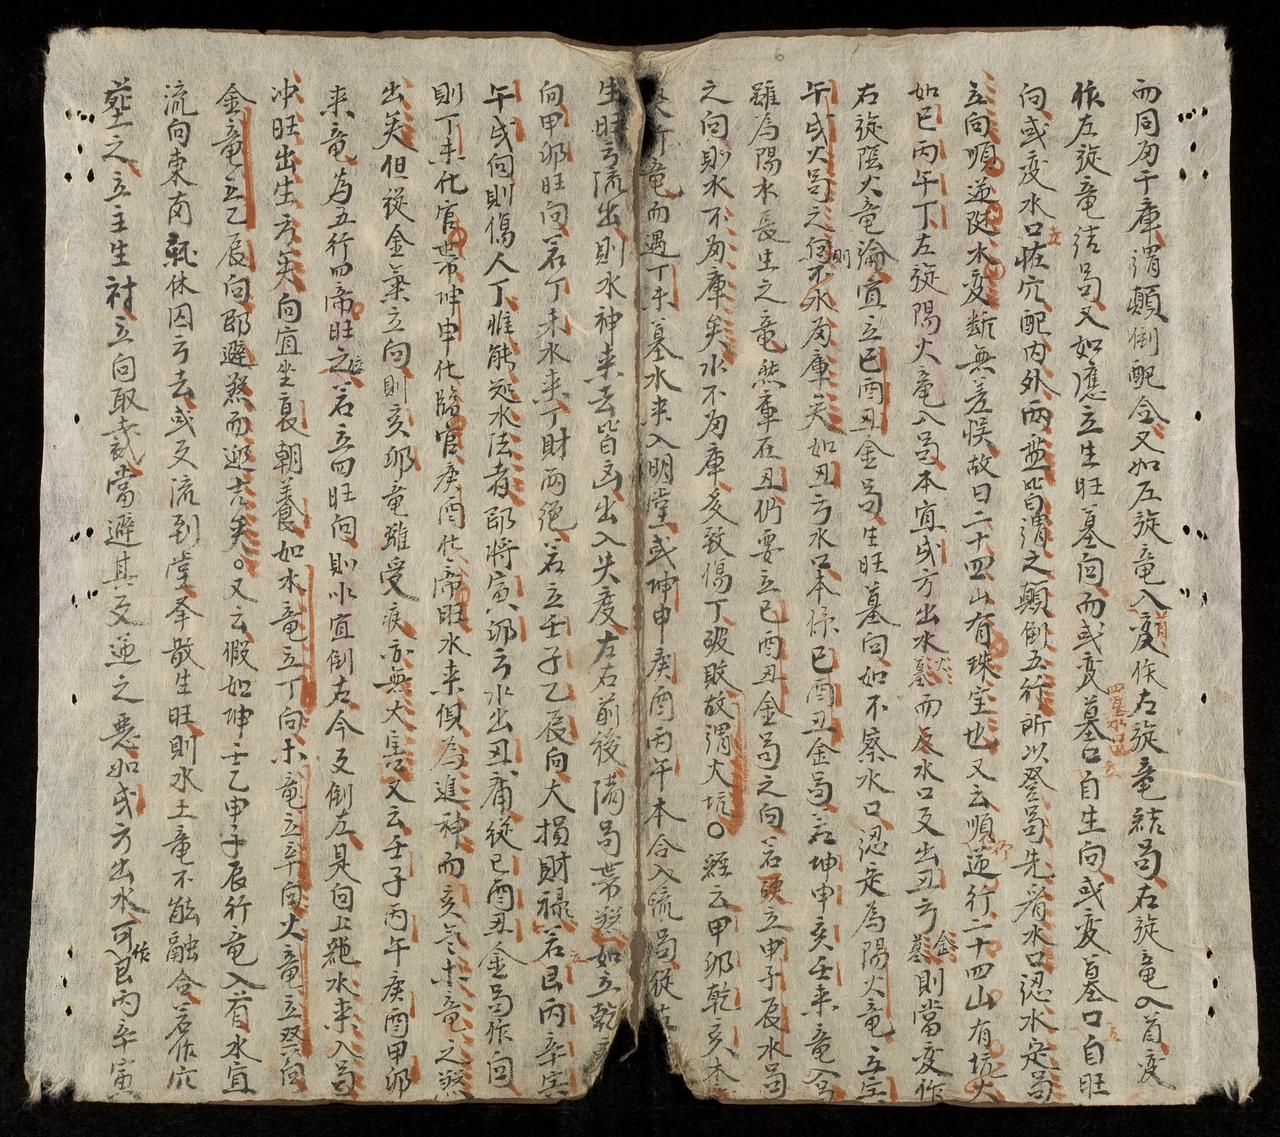 而同局于庫謂顛倒配合又如左旋竜入首変作左旋竜結局右旋竜入首変
作左旋竜结局又如應立生旺墓向而或変墓口自生向或変墓口自旺
向或変水口在穴配内外兩盤皆謂之顛倒五行所以登局先看水口認水定局
立向順逆陡木変断無差悮故曰二十四山有珠宝也又云順逆行二十四山有坑火
如巳丙午丁左旋陽火竜入局本宜戌方出水墓而反水口又出丑方金墓則當変作
右旋陰火竜論宜立巳酉丑金局生旺墓向如不察水口認定為陽火竜立寅
午戌火局之向則不水為庫矣如丑方水口本係巳酉丑金局若坤申亥壬来竜入
雖為陽水長生之竜然庫在丑仍要立巳酉丑金局之向若硬立申子辰水局
之向則水不為庫矣水不為庫多致傷丁破敗故謂大坑〇經云甲卯乾亥木
竜而遇丁未墓水来入明堂或坤申庚酉丙午本合入流局從左
生旺方流出則水神来去皆凶出入失度左右前後満局带煞如立乾
向甲卯旺向若丁未水来丁財両絶若立壬子乙辰向大損財禄若艮丙辛寅
午戌向則傷人丁惟能処水法者即将寅卯方水出丑庫從巳酉丑金局作向
則丁未化官带坤申化臨官庚酉化帝旺水来俱為進神而亥卯木竜之煞
出矣但從金氣立向則亥卯竜雖受疾亦無大害又云壬子丙午庚酉甲卯
来竜為五行四帝旺之位若立四旺向則水宜倒右今反倒左是向上絶水来入局
冲旺出生方矣向宜坐衰朝養如水竜立丁向木竜立辛向火竜立癸向
金竜立乙辰向即避煞而迎吉矣。又云假如坤壬乙申子辰行竜入首水宜
流向東南就休囚方去或反流到堂牽散生旺則水土竜不能融合若作穴
塟之立主生衬立向取裁當避其反逆之悪如戌方出水可作艮丙辛寅